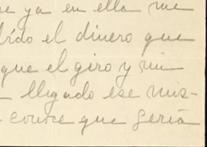 ya en ella me
el dinero que
que el giro y mi
llegado ese mis-
conoce que seria